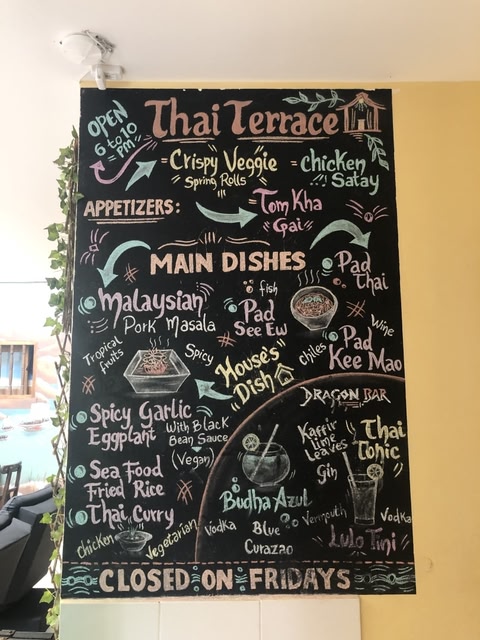 OPEN
6 to 10
PM
Thai Terrace
Crispy Veggie
Spring Rolls
Chicken
Satay
APPETIZERS:
Tom Kha
Gai
MAIN DISHES
Pad
Thai
Malaysian
Pork Masala
fish
Pad
See Ew
Wine
Tropical
fruits
Spicy
House's
Dish
chiles
Pad
Kee Mao
DRAGON BAR
Spicy Garlic
Eggplant
With Black
Bean Sauce
(Vegan)
Kaffir
Lime
Leaves
Thai
Tonic
Gin
Sea Food
Fried Rice
Thai Curry
Chicken
Vegetarian
Budha Azul
Vodka
Blue
Curazao
Vermouth
Vodka
Lulo Tini
CLOSED ON FRIDAYS